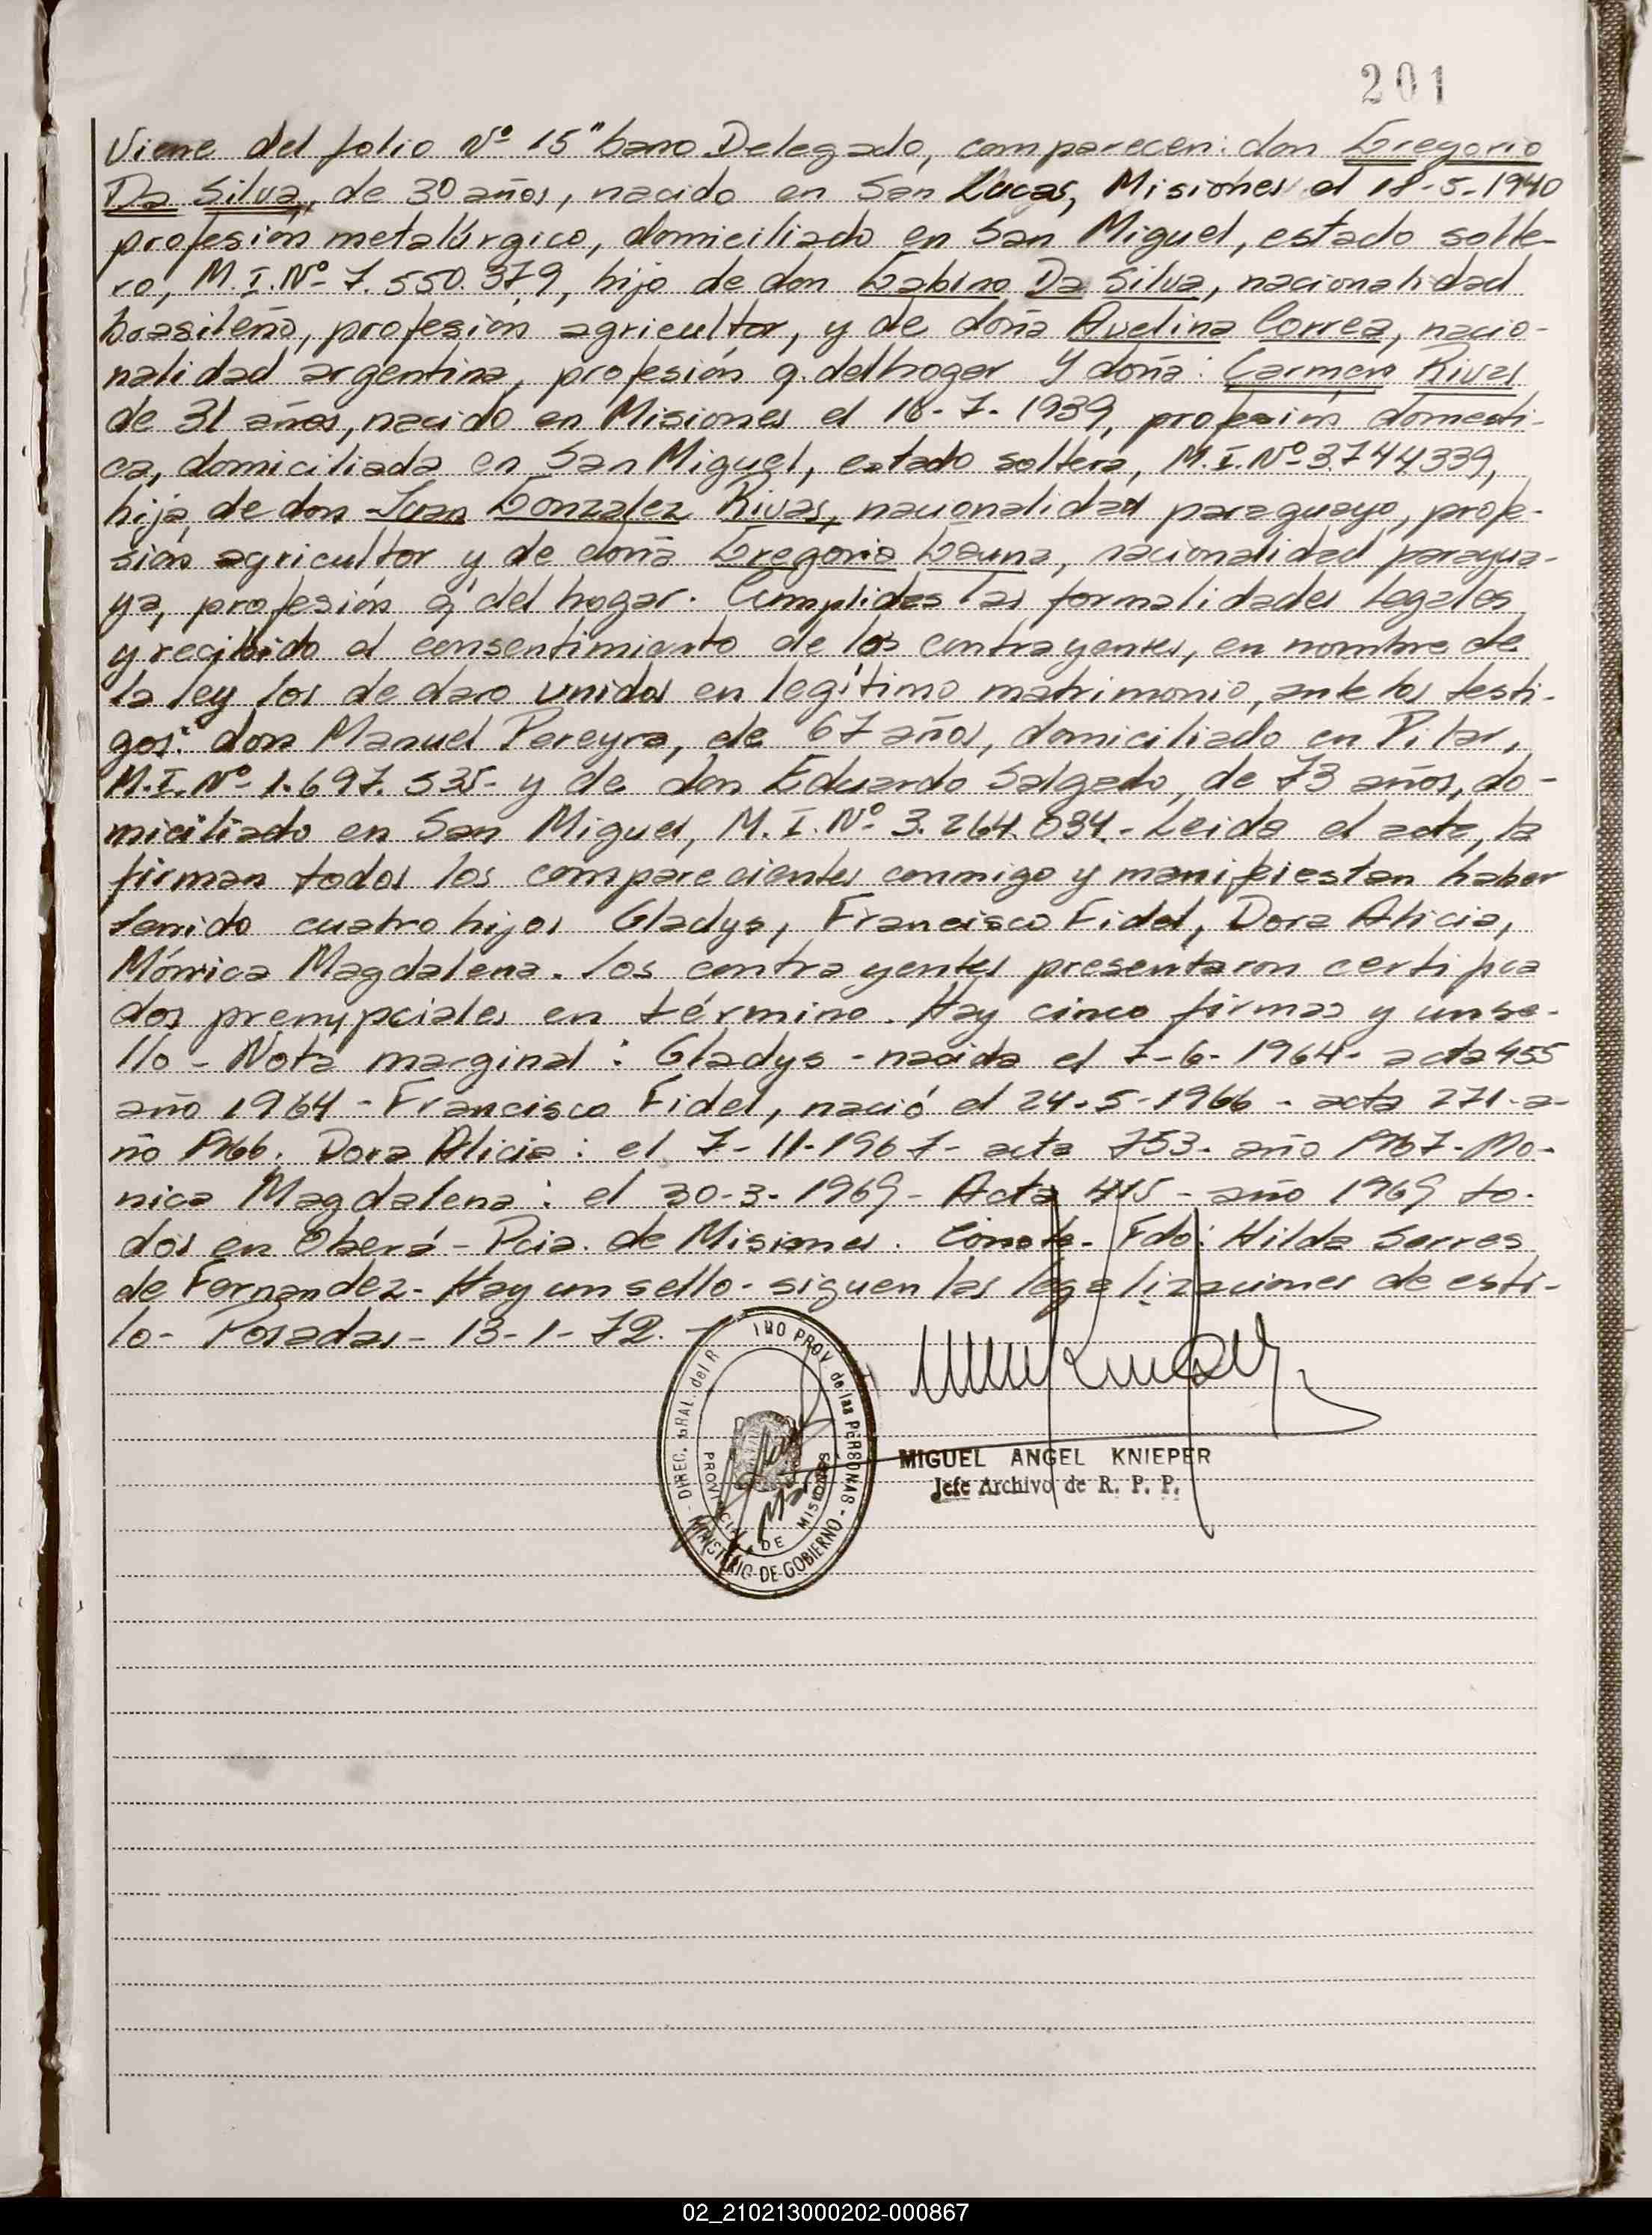 201
Viene del folio Nº 15 "bano Delegado, comparecen: don Gregorio
Da Silva, de 30 años, nacido en San Lucas, Misiones el 18-5-1940
profesión metalúrgico, domiciliado en San Miguel, estado solte-
ro, M.I.Nº 7.550.379, hijo de don Gabino Da Silva, nacionalidad
brasileño, profesión agricultor, y de doña Avelina Correa, nacio-
nalidad argentina, profesión q. del hogar Y doña: Carmen Rivas
de 31 años, nacido en Misiones el 18-7-1939, profesión domesti-
ca, domiciliada en San Miguel, estado soltera, M.I.Nº 3.744339,
hija de don Juan Gonzalez Rivas, nacionalidad paraguayo, profe-
sión agricultor y de doña Gregoria Gauna, nacionalidad paragua-
ya, profesión q. del hogar. Cumplidas las formalidades legales
y recibido el consentimiento de los contrayentes, en nombre de
la ley los declaro unidos en legítimo matrimonio, ante los testi-
gos: don Manuel Pereyra, de 67 años, domiciliado en Pilar,
M.I.Nº 1.697.535- y de don Eduardo Salgado, de 73 años, do-
miciliado en San Miguel, M.I.Nº 3.264.084- Leida el acta, la
firman todos los comparecientes conmigo y manifiestan haber
tenido cuatro hijos Gladys, Francisco Fidel, Dora Alicia,
Mónica Magdalena. los contrayentes presentaron certifica
dos prenupciales en término. Hay cinco firmas y un se-
llo - Nota marginal: Gladys - nacida el 7-6-1964- acta 455
año 1964 - Francisco Fidel, nació el 24-5-1966 - acta 271-a-
ño 1966. Dora Alicia: el 7-11-1967- acta 753- año 1967- Mo-
nica Magdalena: el 30-3-1969- Acta 415 - año 1969 to-
dos en Oberá - Pcia. de Misiones. Conste- Fdo: Hilda Serres
de Fernandez- Hay un sello- siguen las legalizaciones de esti-
lo- Posadas- 13-1-72.-
DIREC. GRAL. del R PROV. de las PERSONAS - MINISTERIO DE GOBIERNO -
PROVINCIA DE MISIONES
MIGUEL ANGEL KNIEPER
Jefe Archivo de R. P. P.
02_210213000202-000867